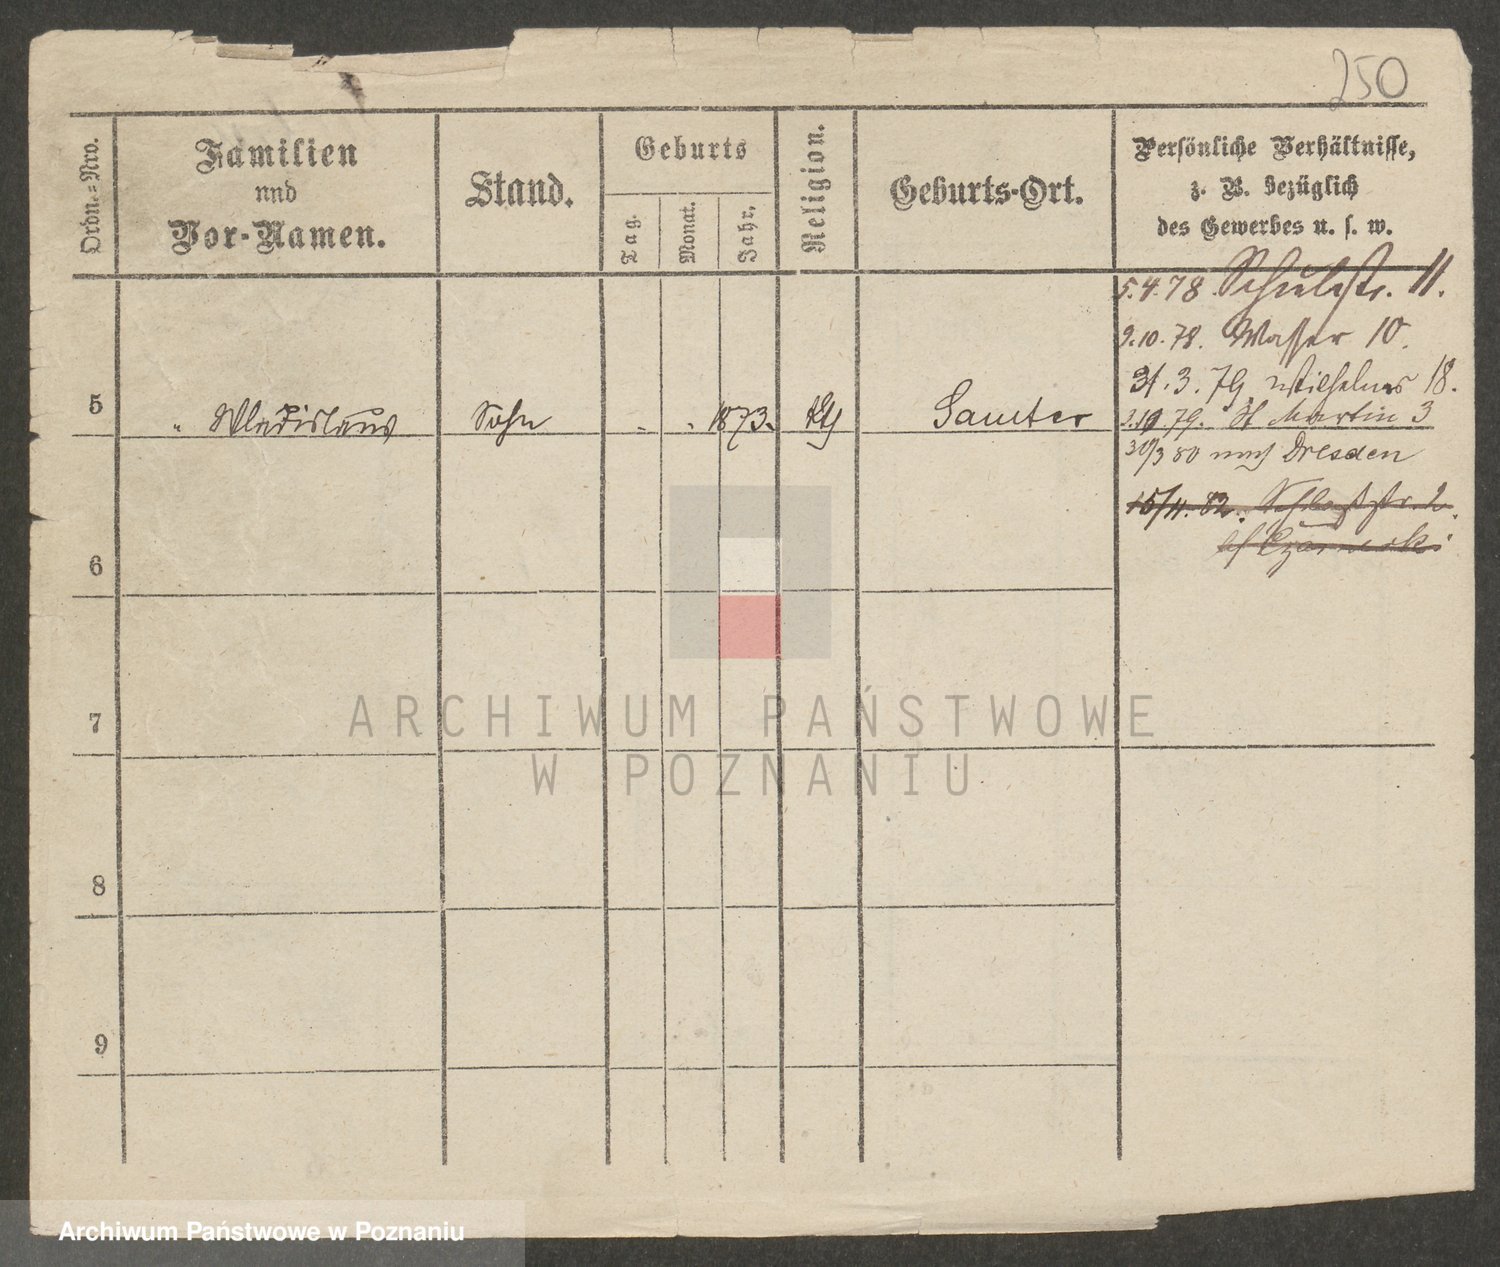 250
Ordn.=Nro.
Familien
und
Vor-Namen.
Stand.
Geburts
Tag.
Monat.
Jahr.
Religion.
Geburts-Ort.
Persönliche Verhältnisse,
z. B. bezüglich
des Gewerbes u. s. w.
5.4.78 Schulstr. 11.
9.10.78. Wasser 10.
31.3.79 Wilhelms 18.
5 " Wladislaus Sohn - - 1873. Kth Samter
2.10.79. St Martin 3
30/3 80 nach Dresden
15/4. 82. Schloßstr. 2.
bf Czarnecki
6
7
8
9
ARCHIWUM PAŃSTWOWE
W POZNANIU
Archiwum Państwowe w Poznaniu